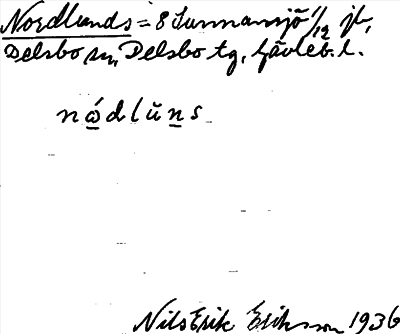 Nordlunds = 8 Sunnansjö 1/12 jb,
Delsbo sn, Delsbo tg, Gävleb. l.
nǻdlŭns
Nils Erik Eriksson 1936